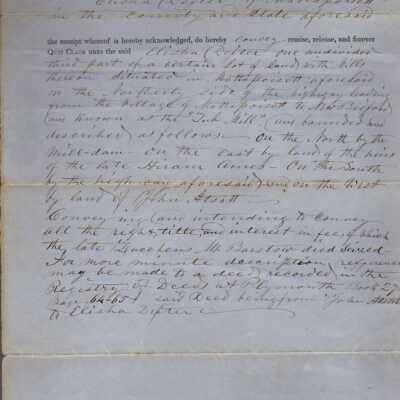 Elisha Dexter of Mattapoisett
in the County and State aforesaid
the receipt whereof is hereby acknowledged, do hereby convey remise, release, and forever
QUIT CLAIM unto the said Elisha Dexter one undivided
third part of a certain lot of land with
thereon situated in Mattapoisett aforesaid
on the Northerly side of the highway leading
from the Village of Mattapoisett to New Bedford
and known as the "Tub Mill" and bounded and
described as follows. On the North by the
mill-dam On the east by land of the heirs
of the late Hiram On the South
by the highway aforesaid and on the West
by land of John
Conveying and intending to convey
all the right, title, and interest in fee, which
the late M. Barstow died seized
For more minute description, reference
may be made to a deed recorded in the
Registry of Deeds at Plymouth Book
page 64-65 said deed being from John
to Elisha Dexter